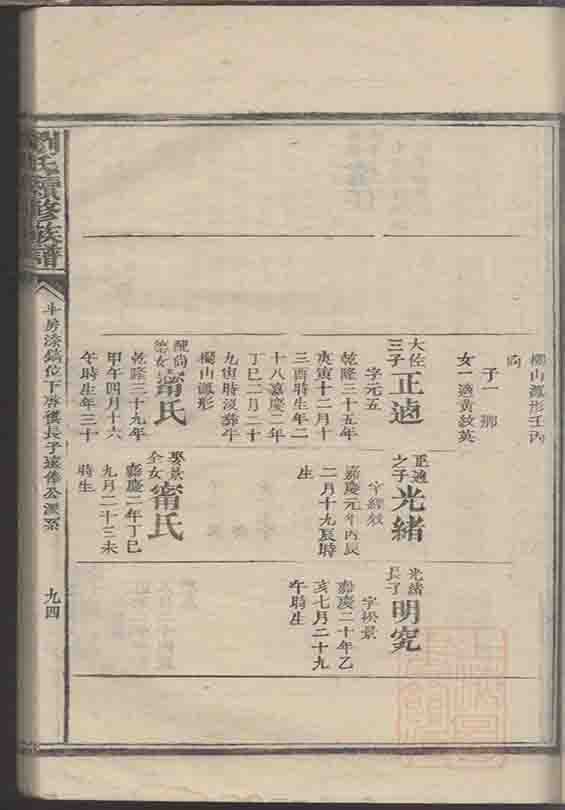 劉氏續修族譜
九四
櫚山瓢形壬丙
向
子一 挪
女一適黃紋英
大佐
三子
正適
字元五
乾隆三十五年
庚寅十二月十
三酉時生年二
十八嘉慶二年
丁巳二月二十
九寅時沒葬斗
櫚山瓢形
配尚
德女
甯氏
乾隆三十九年
甲午四月十六
午時生年三十
正適
之子
光緒
字經效
嘉慶元年丙辰
二月十九辰時
生
娶景
全女
甯氏
嘉慶二年丁巳
九月二十三未
時生
光緒
長子
明究
字松景
嘉慶二十年乙
亥七月二十九
午時生